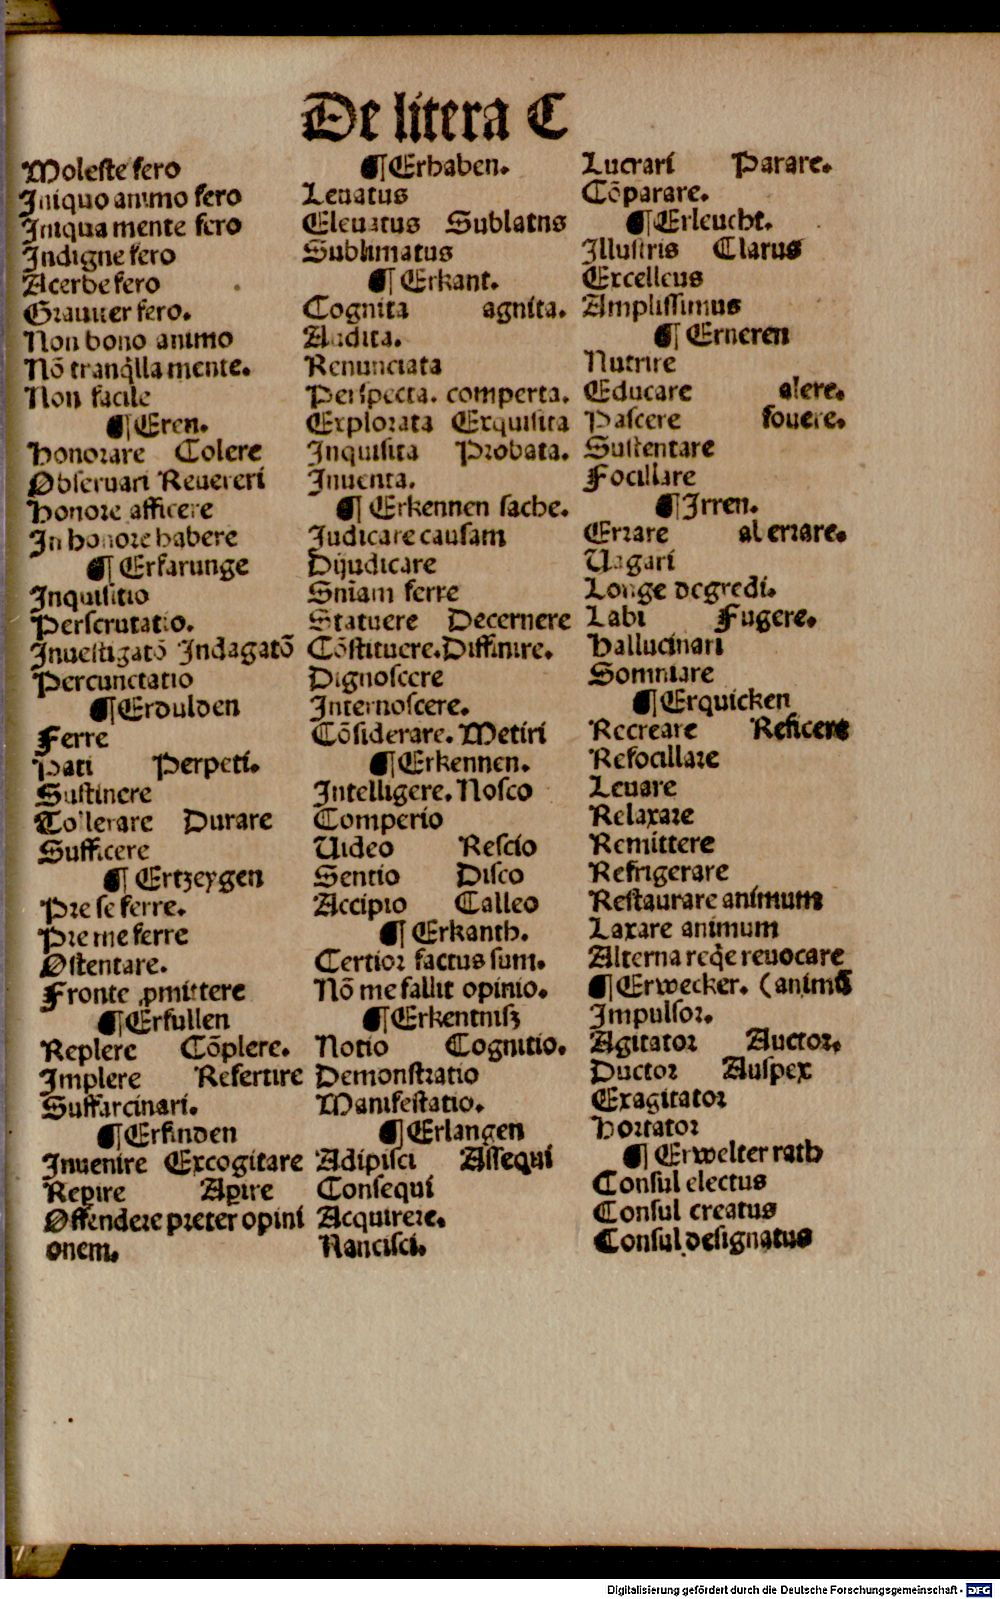 De litera E
Moleste fero
Iniquo animo fero
Iniqua mente fero
Indigne fero
Acerbe fero
Grauiter fero.
Non bono animo
Nō tranq̈lla mente.
Non facile
¶ Eren.
Honorare Colere
Obseruari Reuereri
Honore afficere
In honore habere
¶ Erfarunge
Inquisitio
Perscrutatio.
Inuestigatō Indagatō
Percunctatio
¶ Erdulden
Ferre
Pati Perpeti.
Sustinere
Tollerare Durare
Sufficere
¶ Ertzeygen
Pre se ferre.
Pre me ferre
Ostentare.
Fronte ꝓmittere
¶ Erfullen
Replere Cōplere.
Implere Refertire
Suffarcinari.
¶ Erfinden
Inuenire Excogitare
Reꝑire Aꝑire
Offendere preter opini
onem.
¶ Erhaben.
Leuatus
Eleuatus Sublatus
Sublimatus
¶ Erkant.
Cognita agnita.
Audita.
Renunciata
Perspecta. comperta.
Explorata Exquisita
Inquisita Probata.
Inuenta.
¶ Erkennen sache.
Iudicare causam
Dijudicare
Sniam ferre
Statuere Decernere
Cōstituere. Diffinire.
Dignoscere
Internoscere.
Cōsiderare. Metiri
¶ Erkennen.
Intelligere. Nosco
Comperio
Uideo Rescio
Sentio Disco
Accipio Calleo
¶ Erkanth.
Certior factus sum.
Nō me fallit opinio.
¶ Erkentnisz
Notio Cognitio.
Demonstratio
Manifestatio.
¶ Erlangen
Adipisci Assequi
Consequi
Acquirere.
Nancisci.
Lucrari Parare.
Cōparare.
¶ Erleucht.
Illustris Clarus
Excellens
Amplissimus
¶ Erneren
Nutrire
Educare alere.
Pascere fouere.
Sustentare
Focillare
¶ Irren.
Errare aberrare.
Uagari
Longe degredi.
Labi Fugere.
Hallucinari
Somniare
¶ Erquicken
Recreare Reficere
Refocillare
Leuare
Relaxare
Remittere
Refrigerare
Restaurare animum
Laxare animum
Alterna req̈e reuocare
¶ Erwecker. (animū
Impulsor.
Agitator Auctor.
Ductor Auspex
Exagitator
Hortator
¶ Erwelter rath
Consul electus
Consul creatus
Consul designatus
Digitalisierung gefördert durch die Deutsche Forschungsgemeinschaft - DFG